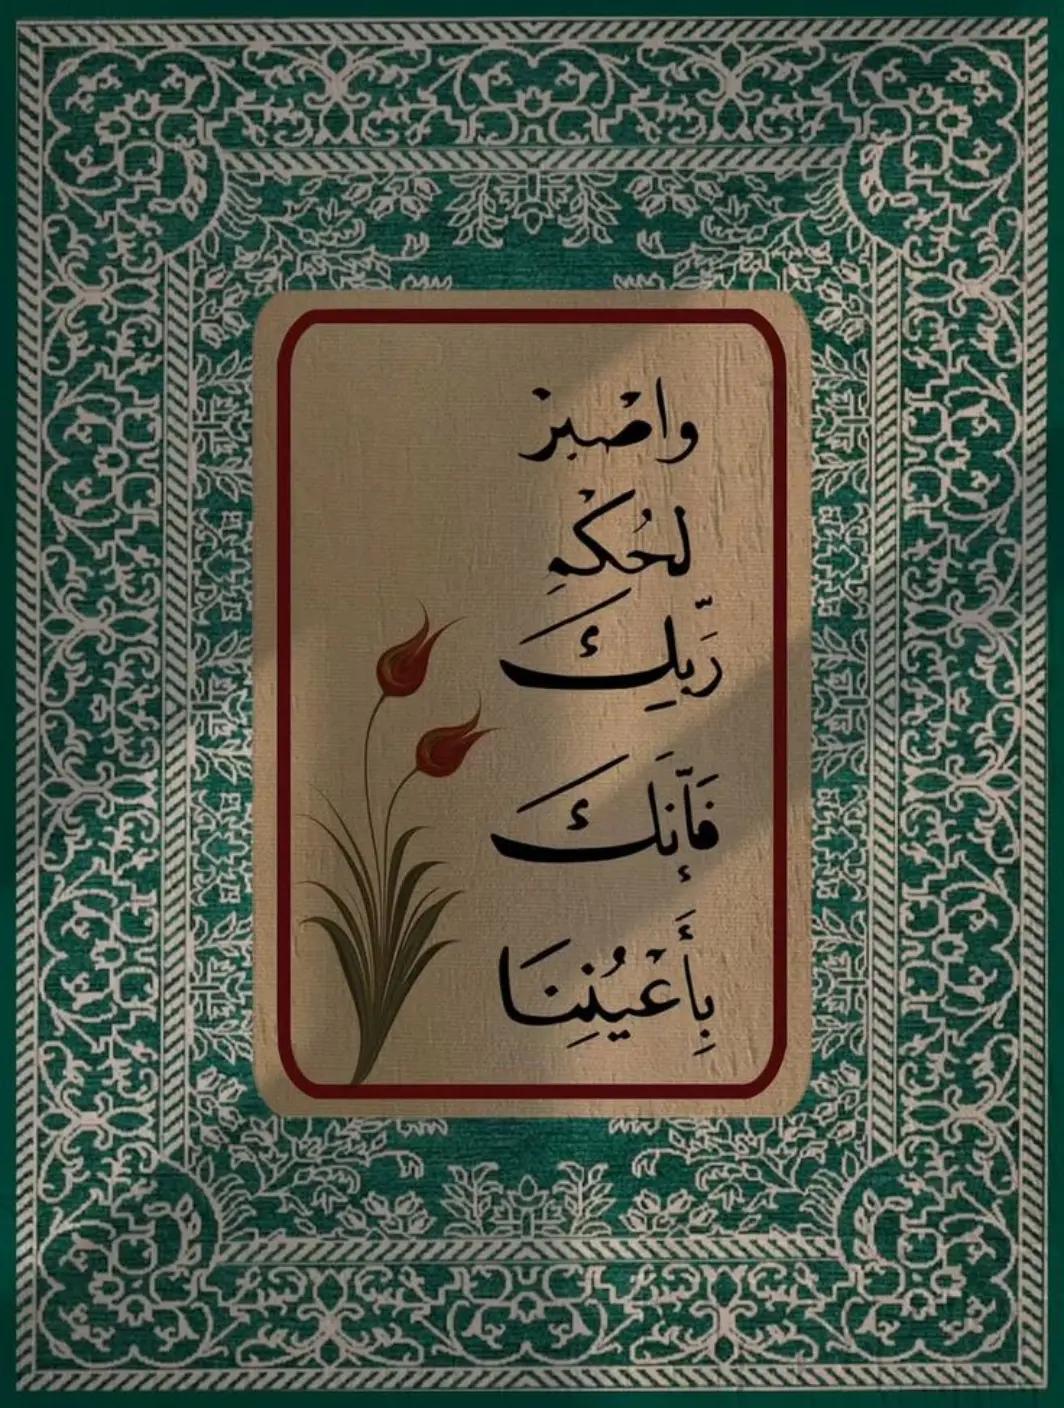 واصْبرْ
لحُكْمِ
رَبّكِ
فَإَنّكَ
بِأَعْيُنِنَا